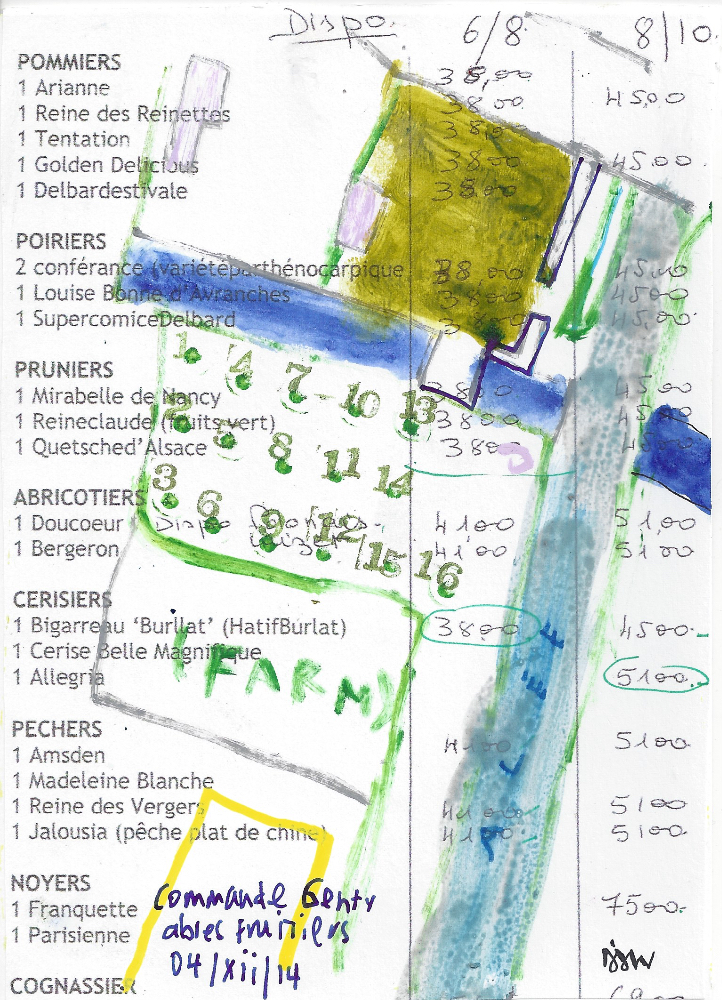 Dispo. 6/8 8/10
POMMIERS 38,00
1 Arianne 45,00
1 Reine des Reinettes 38,00
1 Tentation 38,00
1 Golden Delicious 3800 4500.
1 Delbardestivale 3800
POIRIERS
2 conférance (variétéparthénocarpique 38,00 4500
1 Louise Bonne d'Avranches 3800 4500
1 SupercomiceDelbard
1 4 7 10 13
PRUNIERS
1 Mirabelle de Nancy 4500
1 Reineclaude (fruits vert) 3800 4500
1 Quetsched'Alsace 3800
2 5 8 11 14
ABRICOTIERS
3 6 9 12 15 16
1 Doucoeur Dispo 4100 51,00
1 Bergeron 41,00 5100
CERISIERS
1 Bigarreau 'Burllat' (HatifBurlat) 3800 4500.
1 Cerise Belle Magnifique
1 Allegria 5100.
(FARM)
PECHERS
1 Amsden 4100 5100
1 Madeleine Blanche
1 Reine des Vergers 4100 5100
1 Jalousia (pêche plat de chine) 4100 5100
NOYERS
1 Franquette 7500.
1 Parisienne
Commande Gentr
abres fruitiers
04/xii/14
COGNASSIER